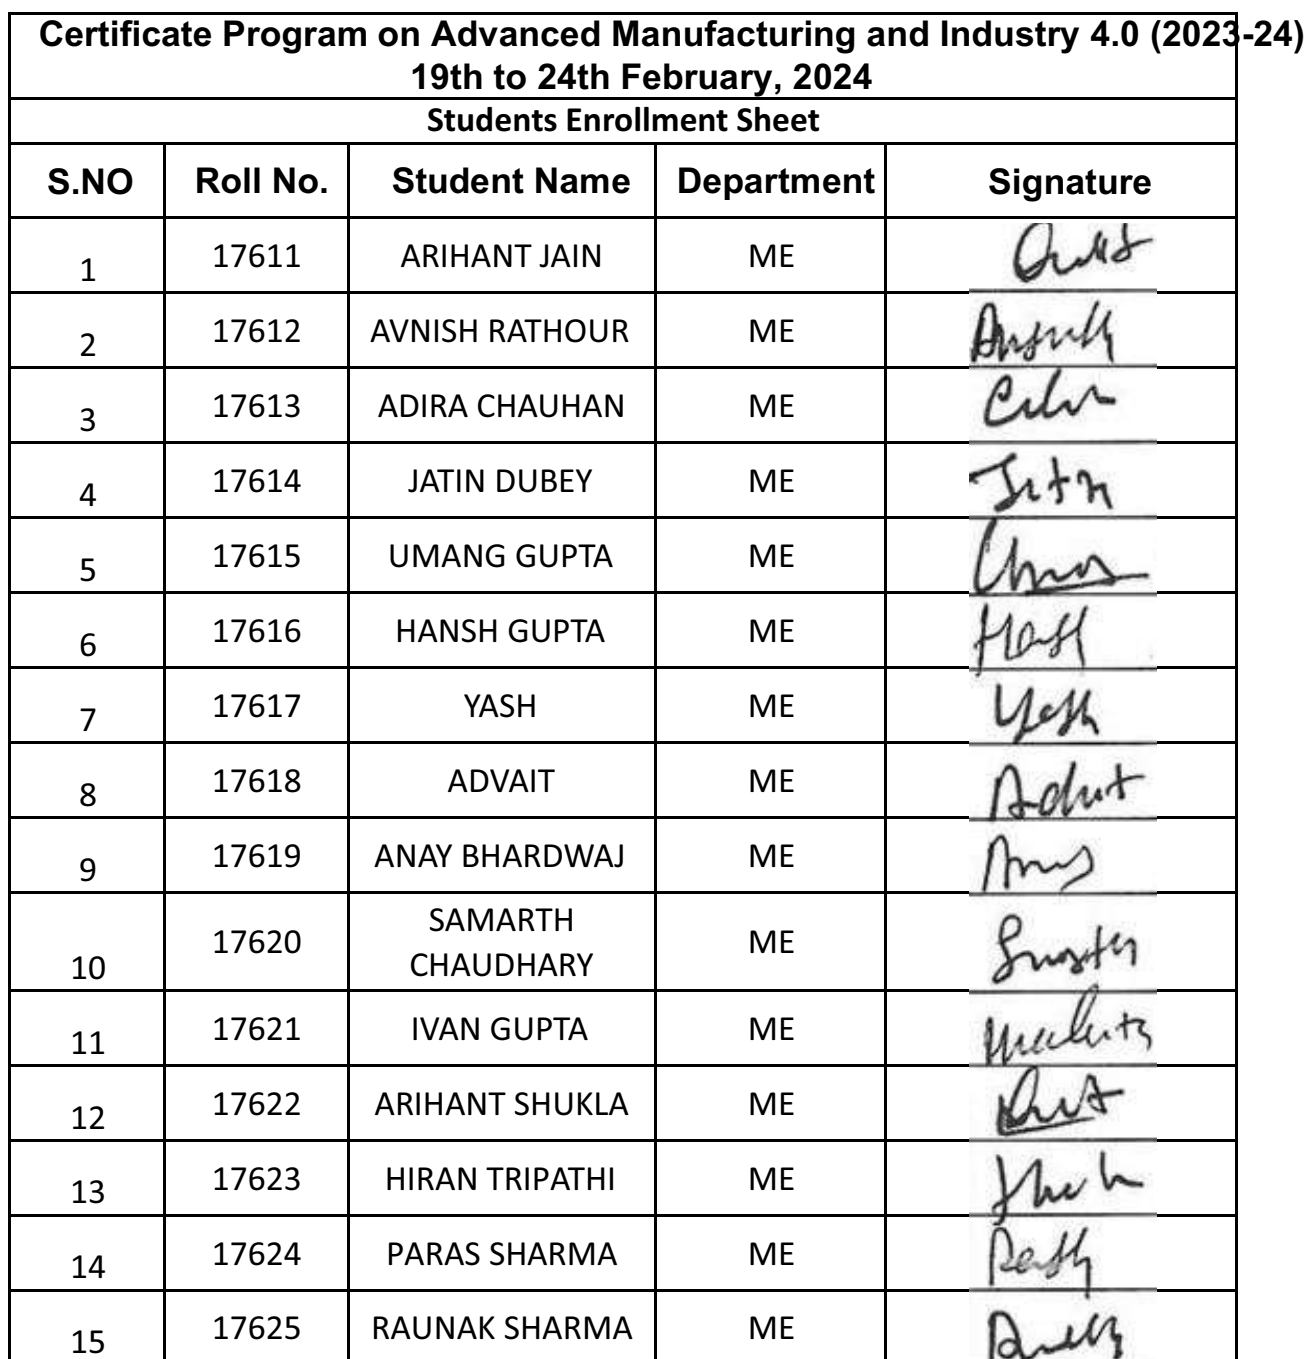 Certificate Program on Advanced Manufacturing and Industry 4.0 (2023-24)
19th to 24th February, 2024
Students Enrollment Sheet
S.NO Roll No. Student Name Department Signature
1 17611 ARIHANT JAIN ME
2 17612 AVNISH RATHOUR ME
3 17613 ADIRA CHAUHAN ME
4 17614 JATIN DUBEY ME
5 17615 UMANG GUPTA ME
6 17616 HANSH GUPTA ME
7 17617 YASH ME Yash
8 17618 ADVAIT ME
9 17619 ANAY BHARDWAJ ME
10 17620 SAMARTH
CHAUDHARY ME
11 17621 IVAN GUPTA ME
12 17622 ARIHANT SHUKLA ME
13 17623 HIRAN TRIPATHI ME
14 17624 PARAS SHARMA ME
15 17625 RAUNAK SHARMA ME